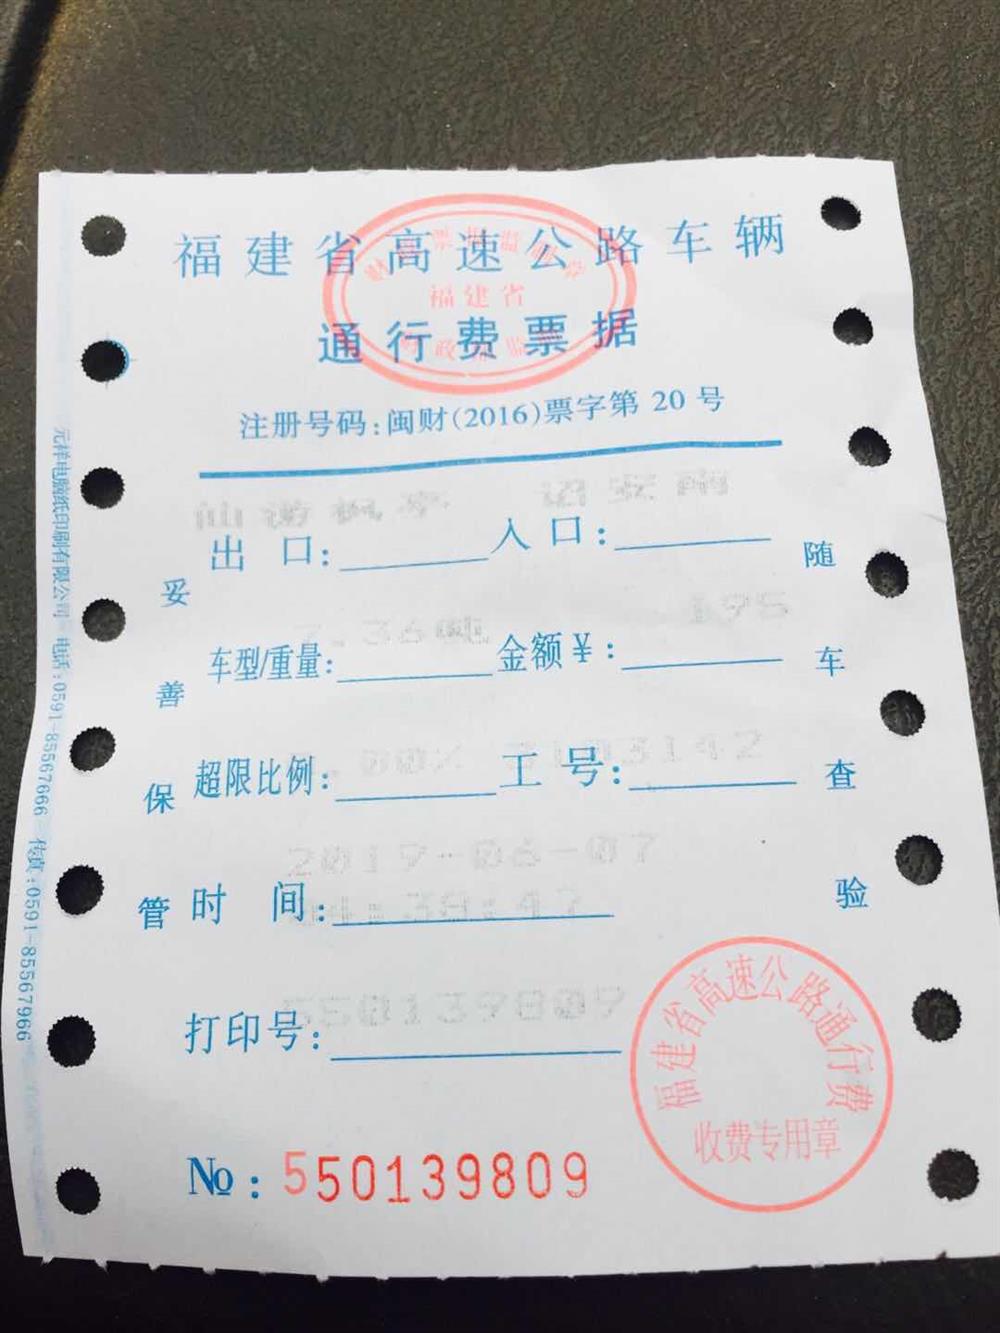 福建省高速公路车辆
通行费票据
福建省
注册号码:闽财(2016)票字第 20 号
仙游枫亭 诏安南
出 口: 入 口:
7.36吨 195
车型/重量: 金额¥:
0.00% 3103142
超限比例: 工 号:
2019-06-07
时 间: 04:38:47
550139809
打印号:
№: 550139809
妥善保管
随车查验
元祥电脑纸印刷有限公司 电话:0591-85567666 传真:0591-85567966
福建省高速公路通行费
收费专用章